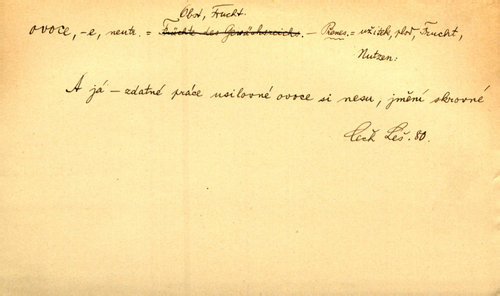 Obst, Frucht.
ovoce, -e, neutr. = Früchte des Gewächsreichs. — Přenes. = užitek, plod, Frucht,
Nutzen:
A já — zdatné práce usilovné ovoce si nesu, jmění skrovné
Čech Leš. 80.